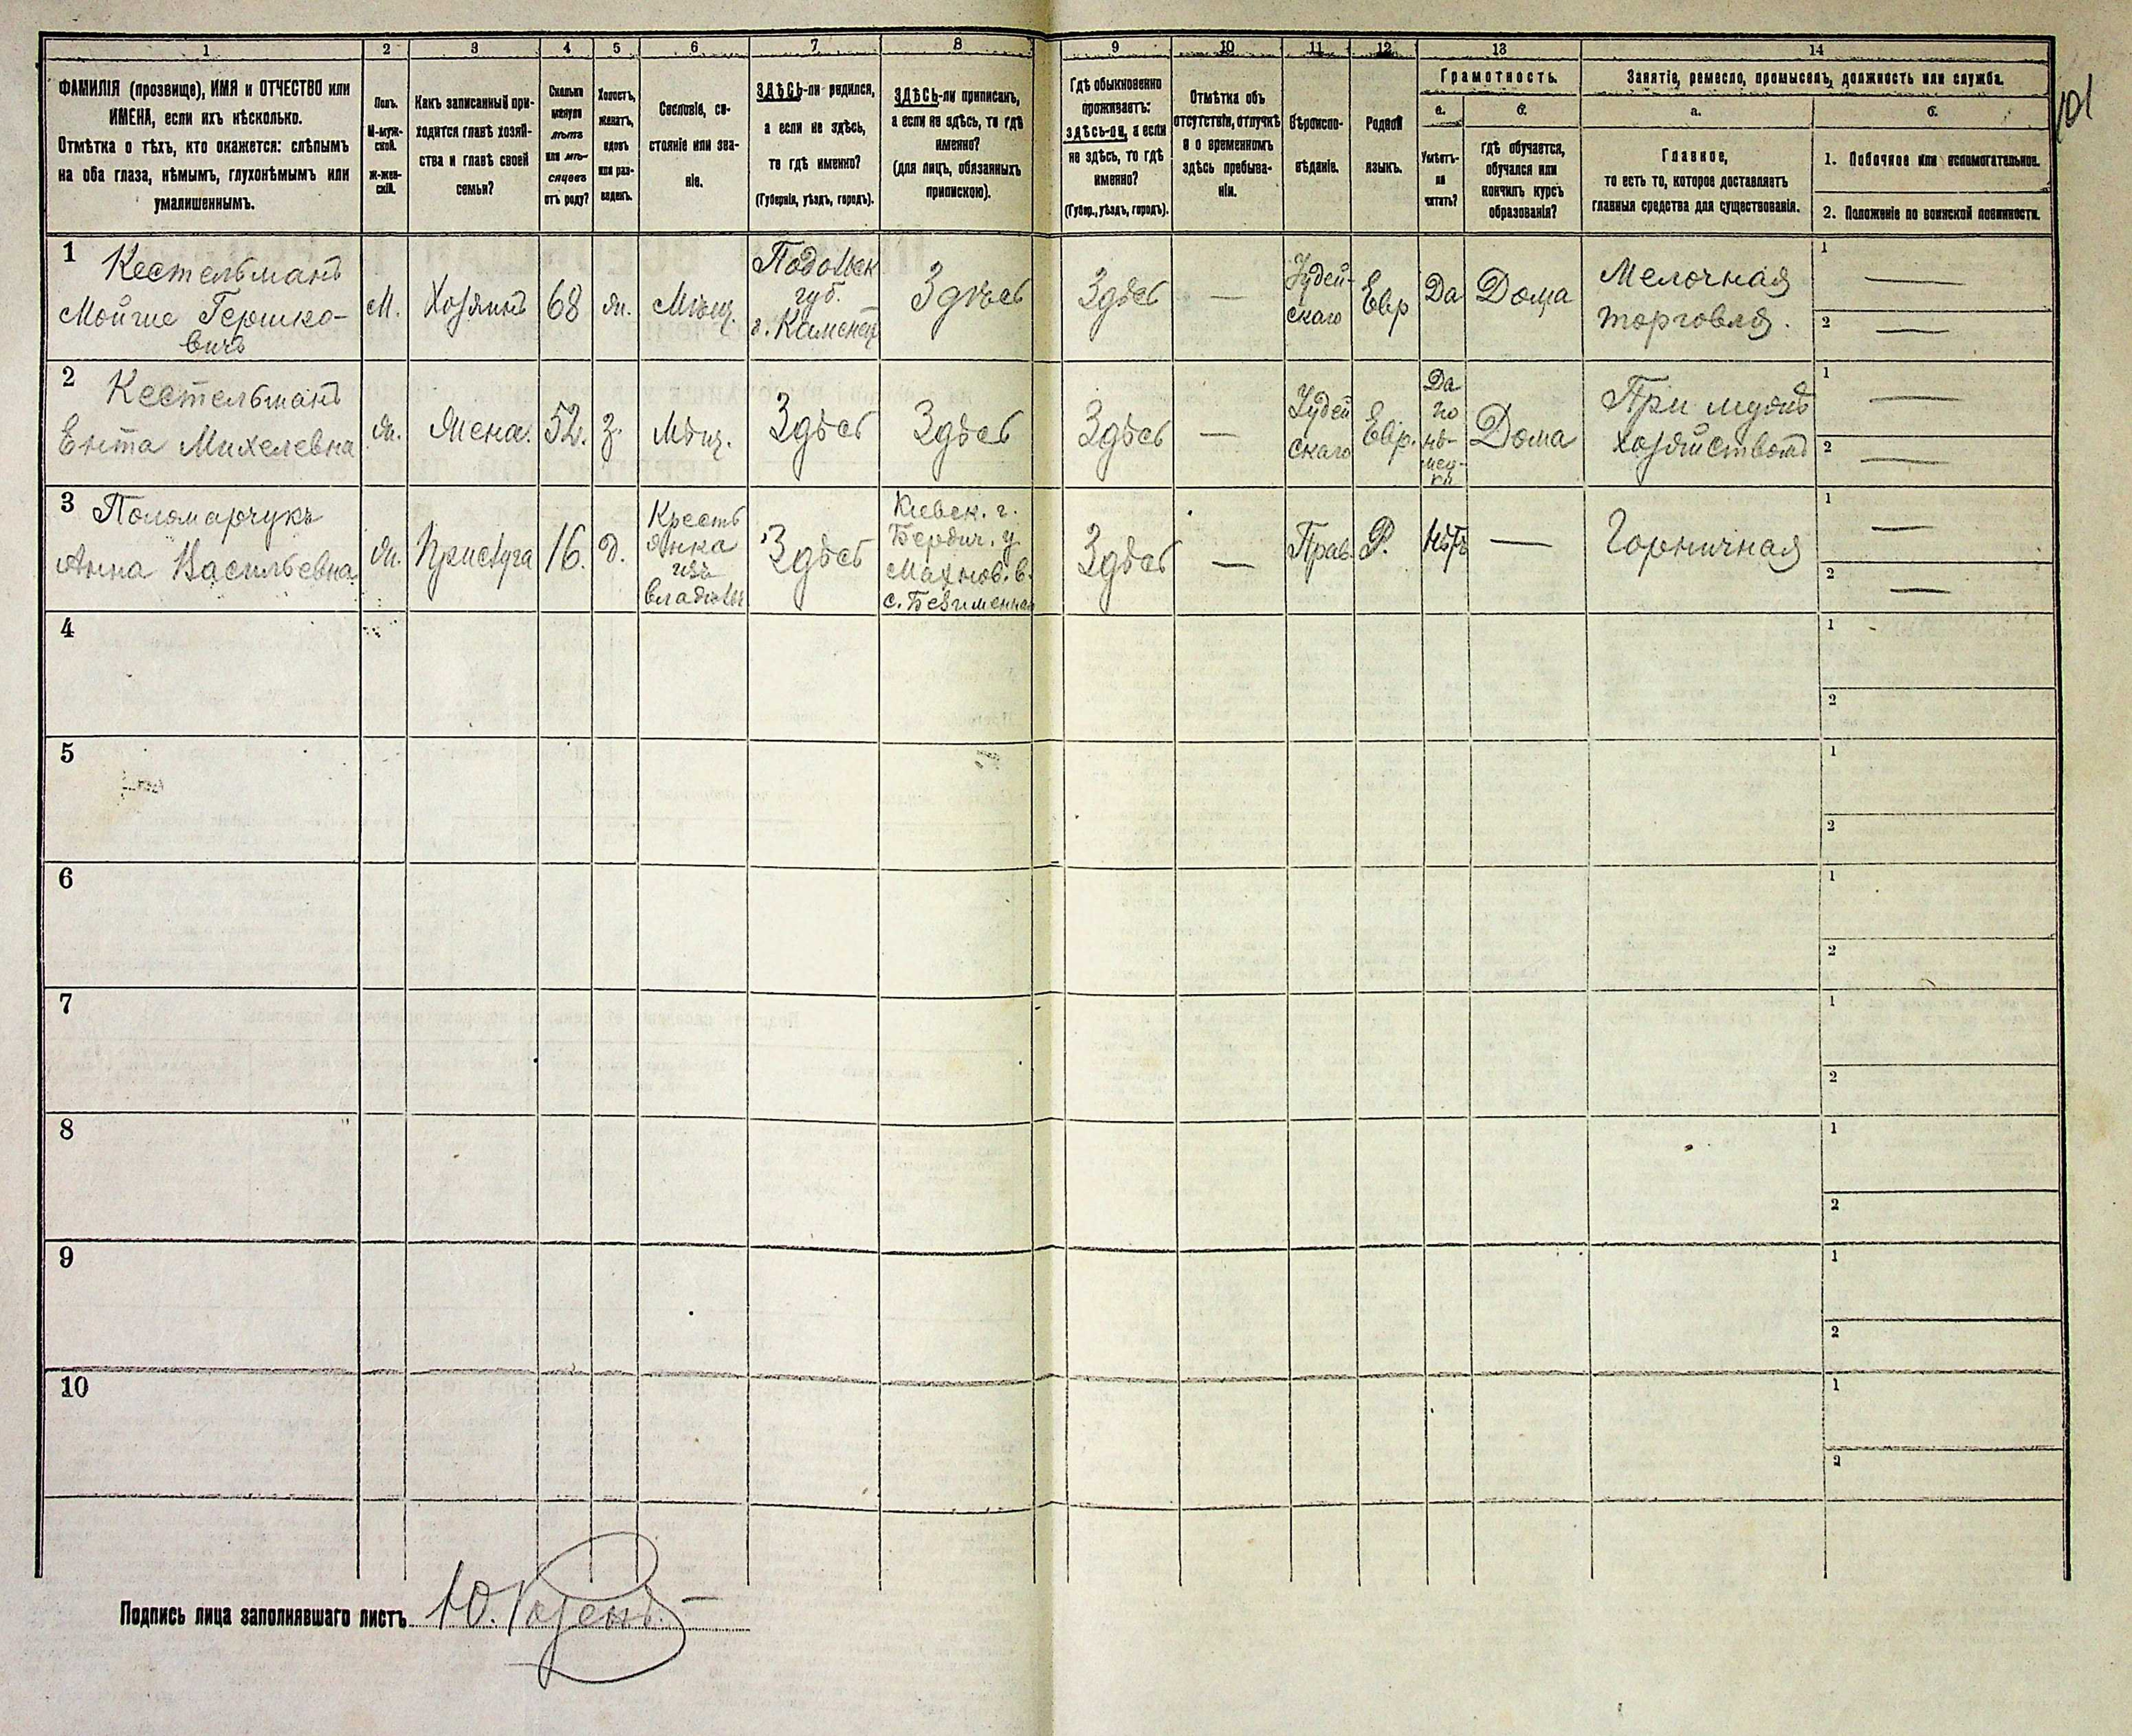 1
2
3
4
5
6
7
8
9
10
11
12
13
14
ФАМИЛІЯ (прозвище), ИМЯ и ОТЧЕСТВО или
ИМЕНА, если ихъ нѣсколько.
Отмѣтка о тѣхъ, кто окажется: слѣпымъ
на оба глаза, нѣмымъ, глухонѣмымъ или
умалишеннымъ.
Полъ.
М-муж-
ской.
Ж-жен-
скій.
Какъ записанный при-
ходится главѣ хозяй-
ства и главѣ своей
семьи?
Сколько
минуло
лѣтъ
или мѣ-
сяцевъ
отъ роду?
Холостъ,
женатъ,
вдовъ
или раз-
веденъ.
Сословіе, со-
стояніе или зва-
ніе.
ЗДѢСЬ-ли родился,
а если не здѣсь,
то гдѣ именно?
(Губернія, уѣздъ, городъ).
ЗДѢСЬ-ли приписанъ,
а если не здѣсь, то гдѣ
именно?
(для лицъ, обязанныхъ
припискою).
Гдѣ обыкновенно
проживаетъ:
здѣсь-ли, а если
не здѣсь, то гдѣ
именно?
(Губер., уѣздъ, городъ).
Отмѣтка объ
отсутствіи, отлучкѣ
и о временномъ
здѣсь пребыва-
ніи.
Вѣроиспо-
вѣданіе.
Родной
языкъ.
Грамотность.
а.
Умѣетъ-
ли
читать?
б.
гдѣ обучается,
обучался или
кончилъ курсъ
образованія?
Занятіе, ремесло, промыселъ, должность или служба.
а.
Главное,
то есть то, которое доставляетъ
главныя средства для существованія.
б.
1. Побочное или вспомогательное.
2. Положеніе по воинской повинности.
101
1
Кестельманъ
Мойше Гершко-
вичъ
М.
Хозяинъ
68
ж.
Мѣщ.
Подольск
губ.
г. Каменец
Здѣсь
Здѣсь
—
Іудей-
скаго
Евр
Да
Дома
Мелочная
торговля.
1
—
2
—
2
Кестельманъ
Ента Михелевна
ж.
Жена.
52.
з.
Мѣщ.
Здѣсь
Здѣсь
Здѣсь
—
Іудей
скаго
Евр.
Да
по
нѣ-
мец-
ки
Дома
При мужѣ
хозяйствомъ
1
—
2
—
3
Поломарчукъ
Анна Васильевна
ж.
Прислуга
16.
д.
Кресть
янка
изъ
владѣль
Здѣсь
Кіевск. г.
Бердич. у.
Махнов. в.
с. Безименная
Здѣсь
—
Прав.
Р.
Нѣтъ
—
Горничная
1
—
2
—
4
1
2
5
1
2
6
1
2
7
1
2
8
1
2
9
1
2
10
1
2
Подпись лица заполнявшаго листъ
Ю. Розенъ